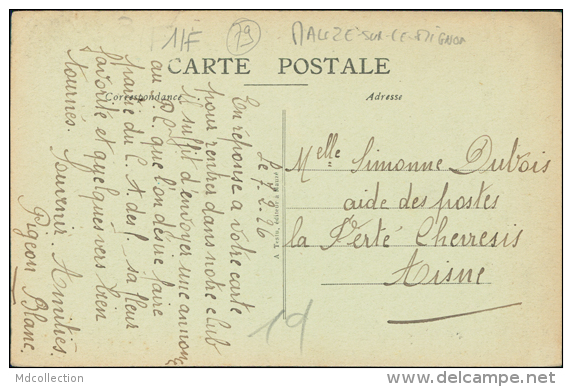 11F 79 MAUZÉ-SUR-LE-MIGNON
CARTE POSTALE
Correspondance
Adresse
Le 7.2.26
En réponse a votre carte
pour rentrer dans notre club
il suffit d'envoyer une annonce
au que l'on désire faire
partie du C. A. des! sa fleur
favorite et quelques vers bien
tournés. Souvenir. Amitiés.
Pigeon Blanc.
Melle Simonne Dubois
aide des postes
la Ferté Cherresis
Aisne
19
Mdcollection
http://www.delcampe.net